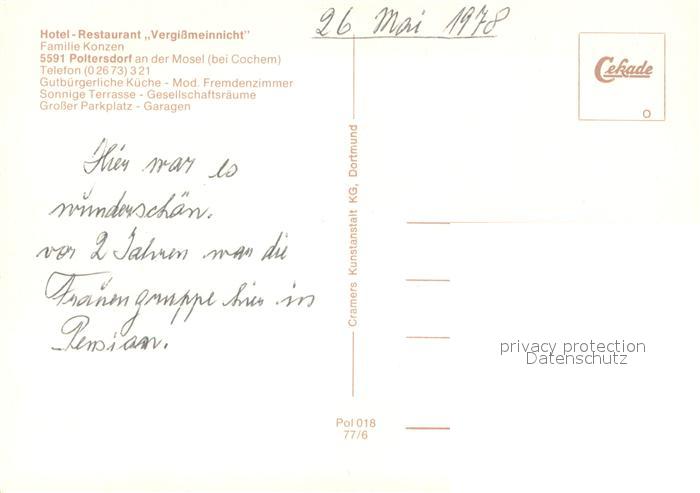 Hotel-Restaurant „Vergißmeinnicht"
Familie Konzen
5591 Poltersdorf an der Mosel (bei Cochem)
Telefon (0 26 73) 3 21
Gutbürgerliche Küche - Mod. Fremdenzimmer
Sonnige Terrasse - Gesellschaftsräume
Großer Parkplatz - Garagen
26 Mai 1978
Cekade
Hier war es
wunderschön.
vor 2 Jahren war die
Frauengruppe hier in
Pension.
Cramers Kunstanstalt KG, Dortmund
privacy protection
Datenschutz
Pol 018
77/6